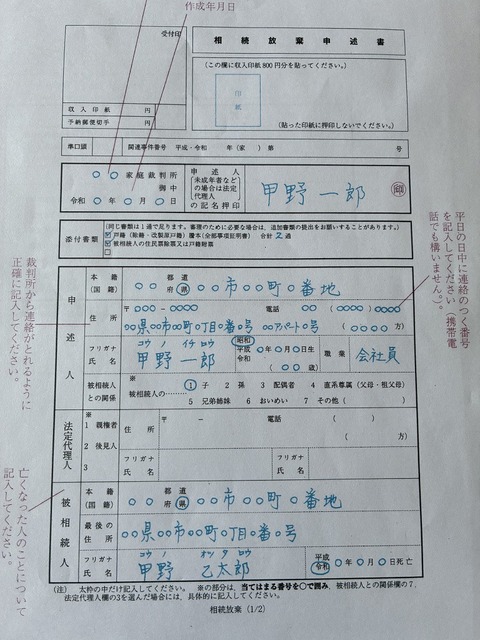 作成年月日
受付印
相続放棄申述書
(この欄に収入印紙800円分を貼ってください。)
印
紙
(貼った印紙に押印しないでください。)
収入印紙 円
予納郵便切手 円
準口頭 関連事件番号 平成・令和 年(家)第 号
○○家庭裁判所
御中
令和 ○年 ○月 ○日
申述人
(未成年者など
の場合は法定
代理人
の記名押印)
甲野一郎 ㊞
添付書類
(同じ書類は1通で足ります。審理のために必要な場合は、追加書類の提出をお願いすることがあります。)
☑ 戸籍(除籍・改製原戸籍)謄本(全部事項証明書) 合計 2 通
☑ 被相続人の住民票除票又は戸籍附票
□
平日の日中に連絡のつく番号
を記入してください(携帯電
話でも構いません)。
裁判所から連絡がとれるように
正確に記入してください。
申述人
本籍
(国籍)
都 道
○○ 府 県 ○○市○○町○番地
住所
〒○○○-○○○○ 電話 ○○(○○○○)○○○○
○○県○○市○○町○丁目○番○号 ○○アパート○号 (○○○○方)
フリガナ
氏名
コウノ イチロウ
甲野一郎
昭和
平成 ○年○月○日生
(○○歳)
職業 会社員
被相続人
との関係
※
被相続人の………
1 子 2 孫 3 配偶者 4 直系尊属(父母・祖父母)
5 兄弟姉妹 6 おいめい 7 その他( )
法定代理人
※
1 親権者
2 後見人
3
住所
〒 - 電話 ( )
( 方)
フリガナ
氏名
フリガナ
氏名
亡くなった人のことについて
記入してください。
被相続人
本籍
(国籍)
都 道
○○ 府 県 ○○市○○町○番地
最後の
住所
○○県○○市○○町○丁目○番○号
フリガナ
氏名
コウノ オツタロウ
甲野 乙太郎
平成
令和 ○年○月○日死亡
(注) 太枠の中だけ記入してください。 ※の部分は、当てはまる番号を○で囲み、被相続人との関係欄の7、
法定代理人欄の3を選んだ場合には、具体的に記入してください。
相続放棄(1/2)